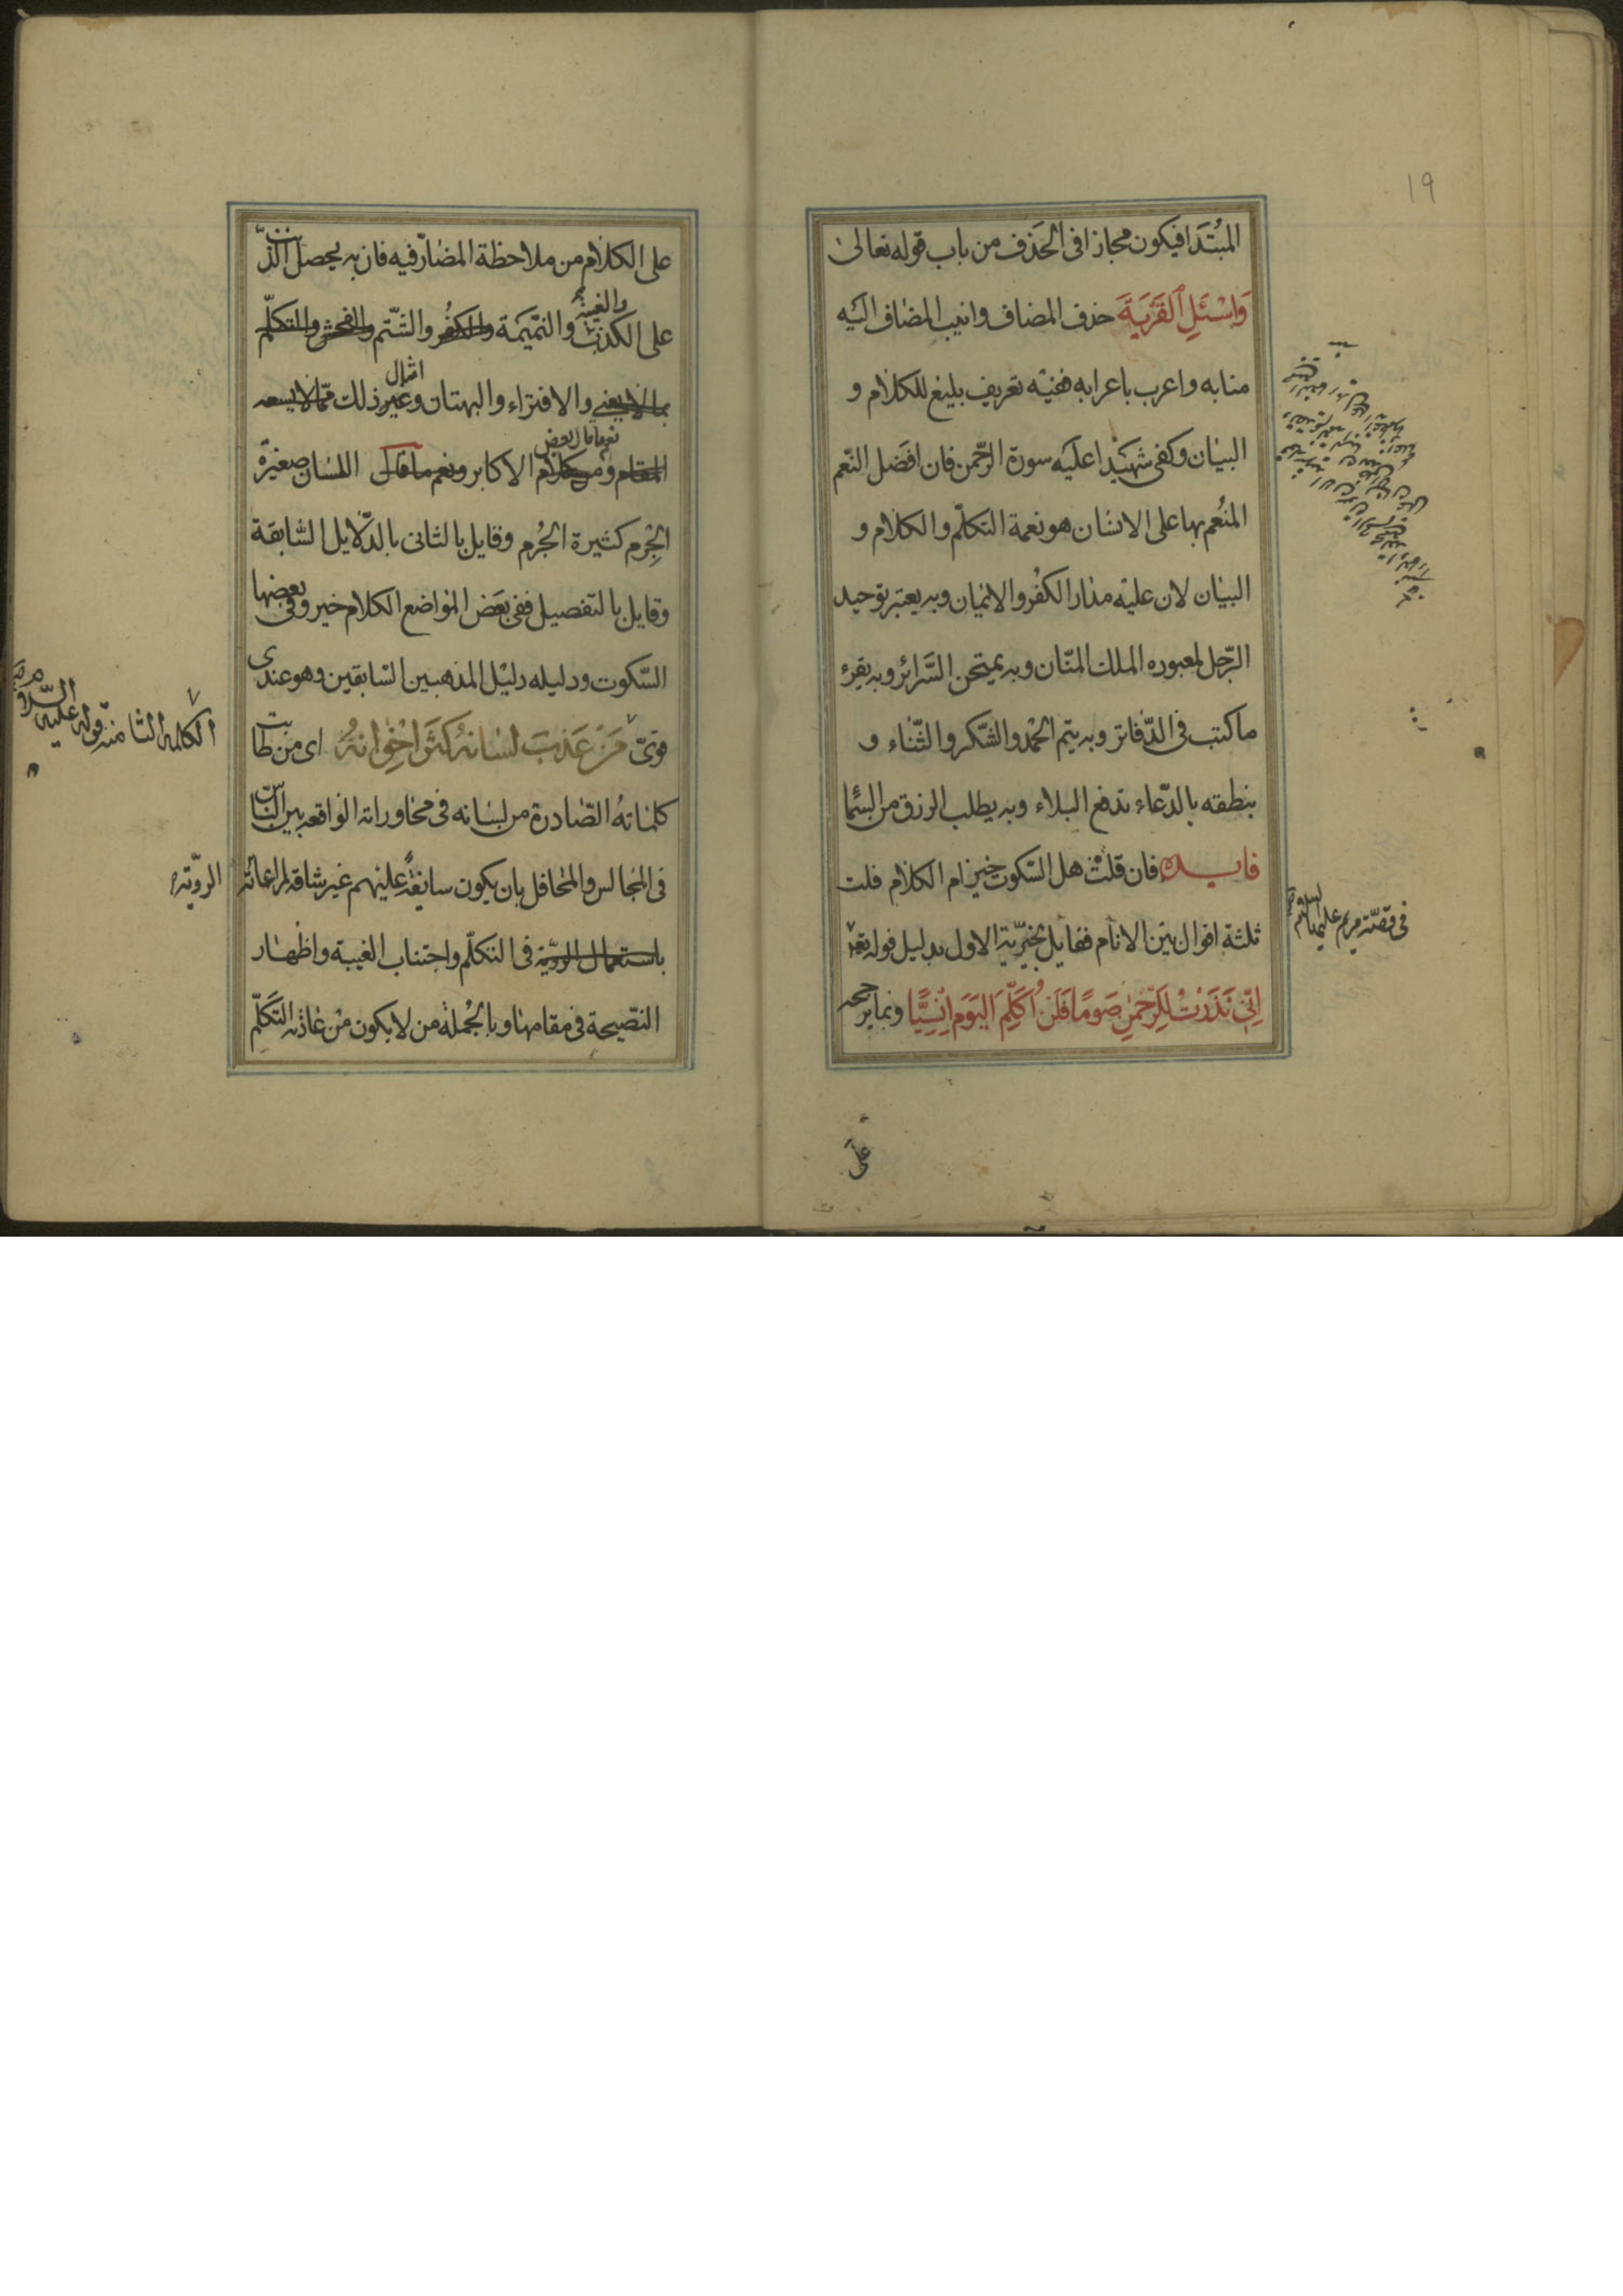 ١٩
المبتدا فيكون مجازا فى الحذف من باب قوله تعالى
وَاسْئَلِ ٱلْقَرْيَةَ حذف المضاف وانيب المضاف اليه
منابه واعرب باعرابه ففيه تعريف بليغ للكلام و
البيان وكفى شهيدا عليه سورة الرّحمن فان افضل النّعم
المنعم بها على الانسان هو نعمة التكلّم والكلام و
البيان لان عليه مدار الكفر والايمان وبه يعتبر توحيد
الرّجل لمعبوده الملك المنّان وبه يمتحن السّرائر وبه يقرء
ما كتب فى الدّفاتر وبه يتم الحمد والشّكر والثّناء و
بنطقه بالدّعاء تدفع البلاء وبه يطلب الرزق من السّما
فايده فان قلت هل السّكوت خير ام الكلام قلت
ثلثة اقوال بين الانام فقايل بخيريّة الاول بدليل قوله تعا
فى قصّة مريم عليها السلام
اِنّى نَذَرْتُ لِلرَّحْمنِ صَومًا فَلَنْ اُكَلِّمَ اليَوْمَ اِنْسِيًّا وبما يرجحه
على
على الكلام من ملاحظة المضارّ فيه فان به يحصل الذّنب
على الكذب والغيبة والنّميمة والكفر والشّتم والفحش والتكلّم
بما لا يعنى والافتراء والبهتان وغير امثال ذلك ممّا لا يسعه
المقام ومن كلام نعم ما قال بعض الاكابر ونعم ما قال اللسان صغيرة
الجِرم كثيرة الجُرم وقايل بالثانى بالدّلايل السّابقة
وقايل بالتفصيل ففى بعض المواضع الكلام خير وفى بعضها
السّكوت ودليله دليل المذهبين السّابقين وهو عندى
قوىّ مَنْ عَذبَ لسَانهُ كَثرَ اخْوانهُ اى من طابت
الكلمه الثامنه قوله عليه السّلام
كلماته الصّادرة من لسانه فى محاوراته الواقعه بين النّاس
فى المجالس والمحافل بان يكون سايغة عليهم غير شاقه لمراعاته الرويّة
باستعمال الرويّة فى التكلّم واجتناب الغيبة واظهار
النّصيحة فى مقامها وبالجملة من لا يكون من عادته التكلّم